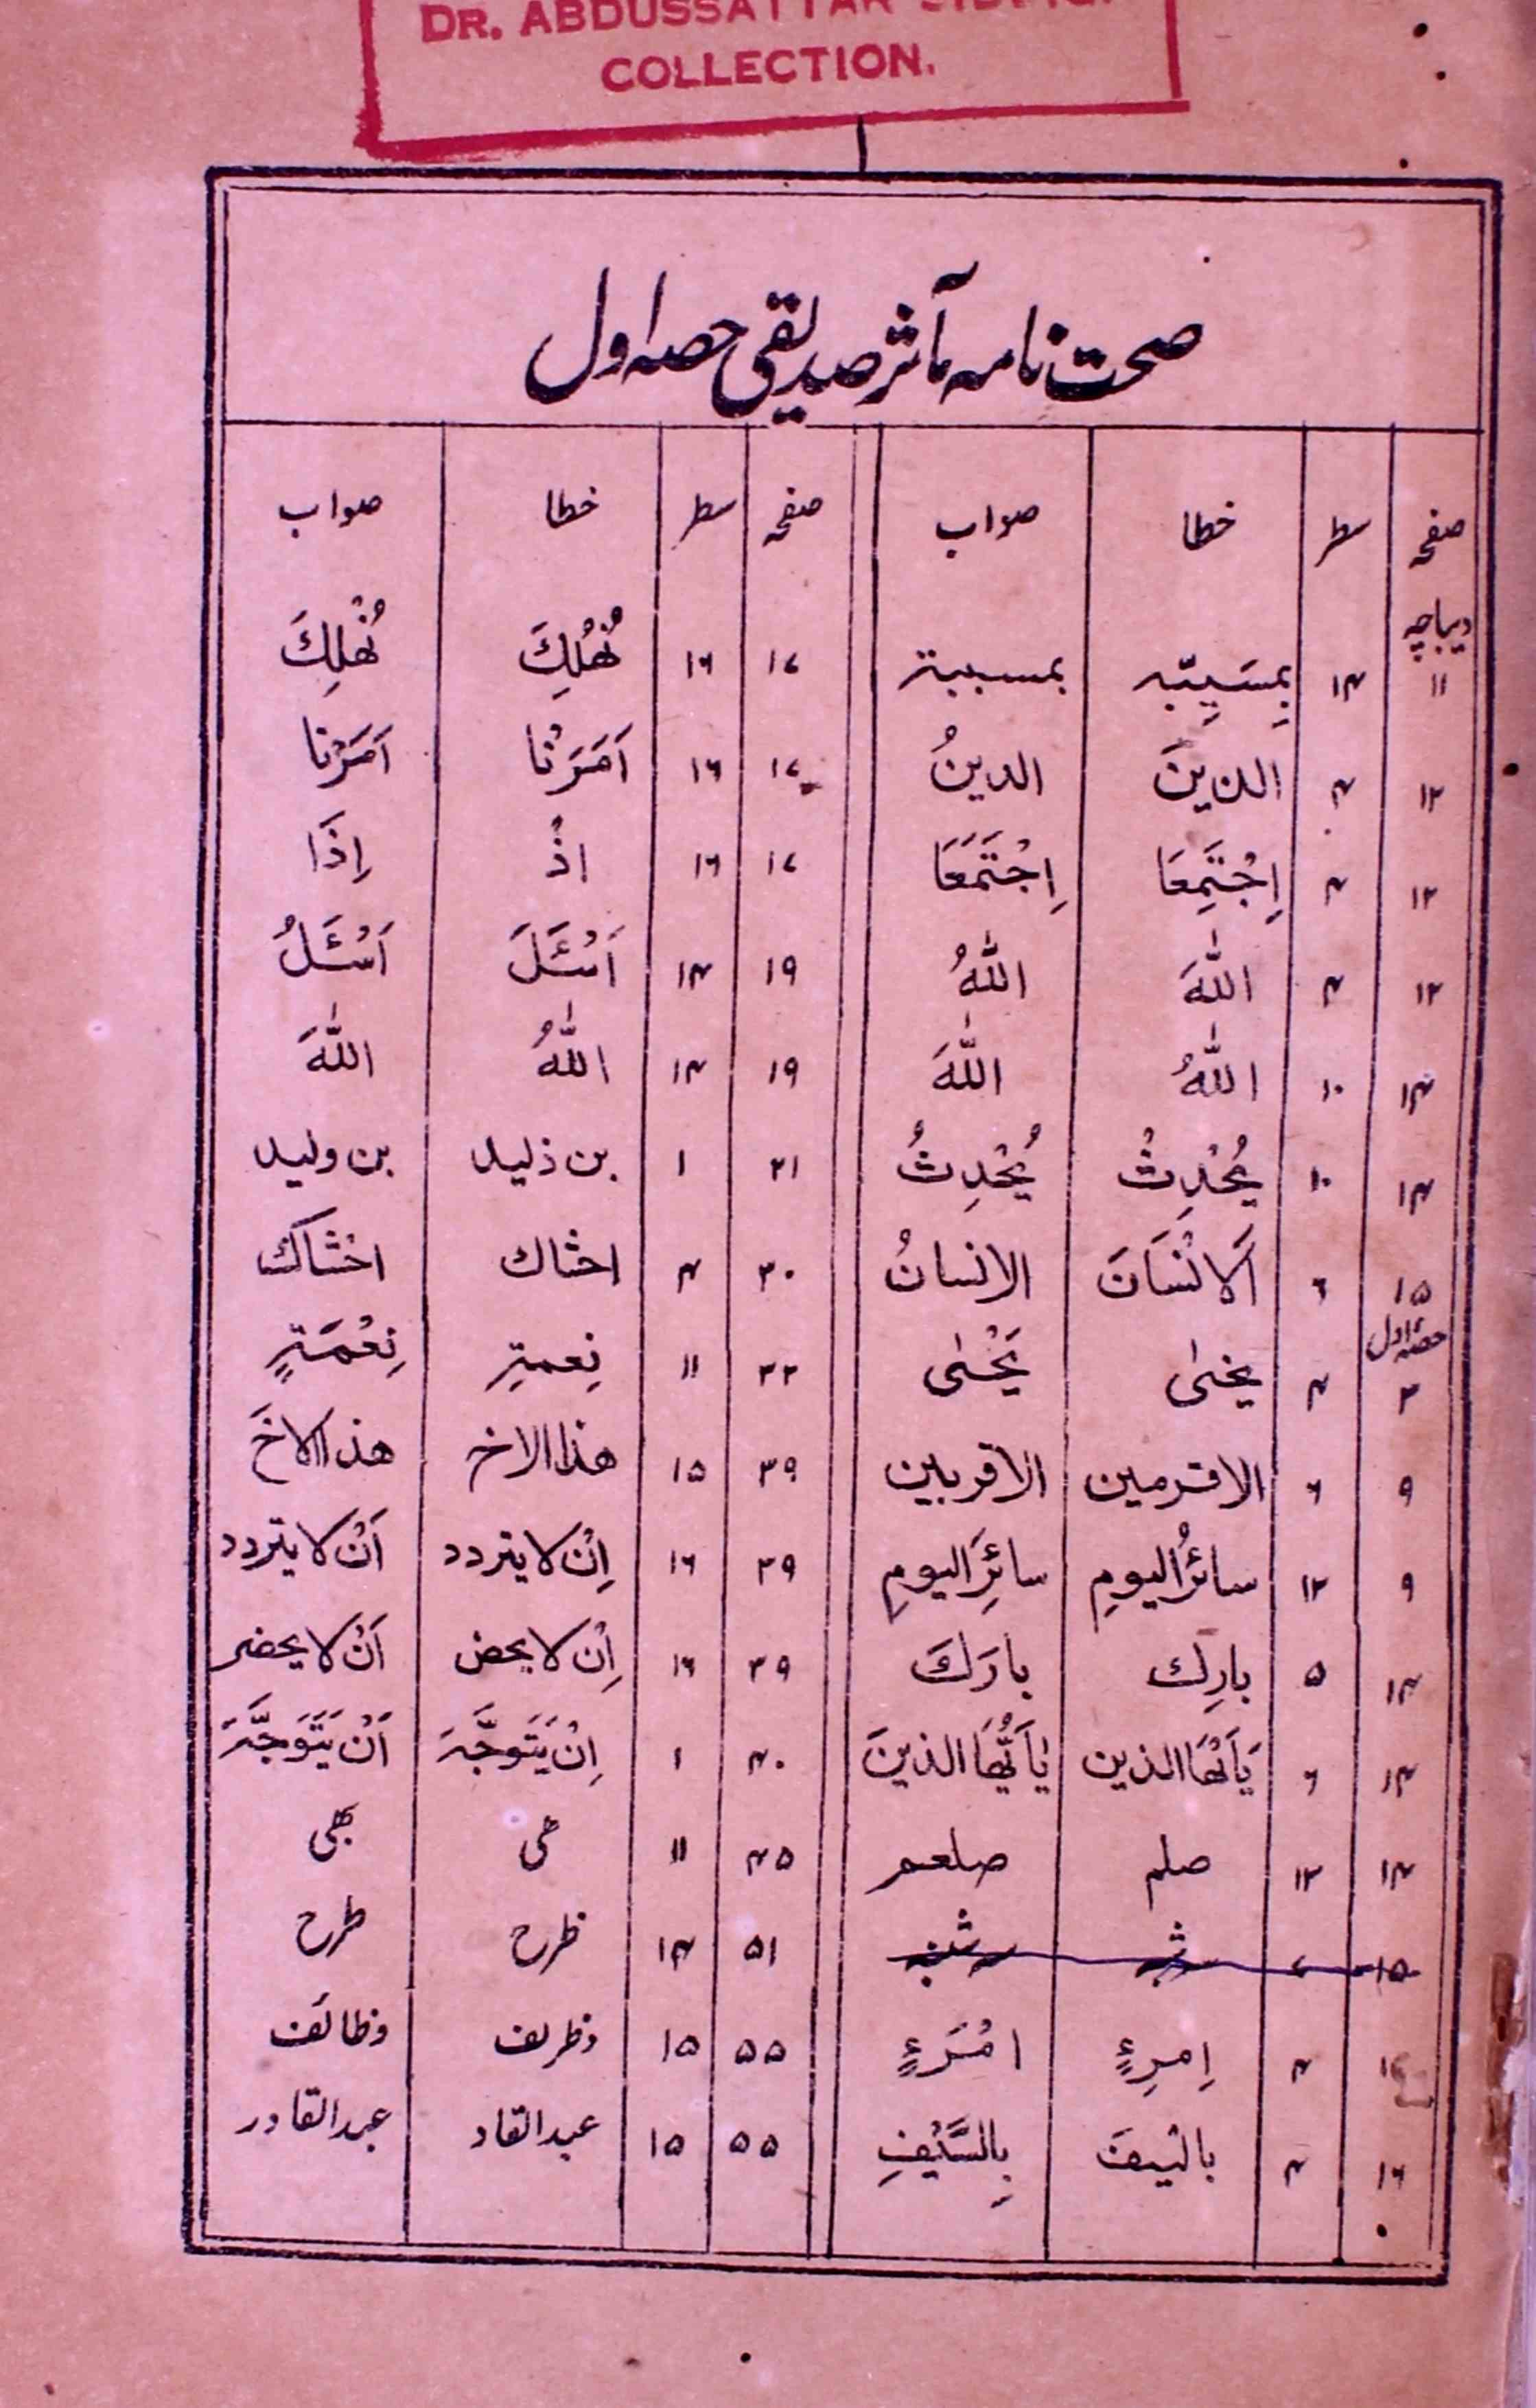 DR. ABDUSSATTAR SIDDIQI
COLLECTION.
صحت نامہ مآثر صدیقی حصہ اول
صفحہ سطر خطا صواب صفحہ سطر خطا صواب
دیباچہ
۱۱ ۱۴ بِمسَبِبّہ بمسببة ۱۷ ۱۶ نُهْلُكِ نُهْلِكَ
۱۲ ۴ الدينَ الدينُ ۱۷ ۱۶ اَمَرَنْا اَمَرْنا
۱۲ ۴ اِجْتَمِعَا اِجْتَمَعَا ۱۷ ۱۶ اذْ اِذَا
۱۲ ۴ اللّٰهَ اللّٰهُ ۱۹ ۱۴ اَسْئَلَ اَسْئَلُ
۱۴ ۱۰ اللّٰهُ اللّٰهَ ۱۹ ۱۴ اللّٰهُ اللّٰهَ
۱۴ ۱۰ يُحْدِثْ يُحْدِثُ ۲۱ ۱ بن ذليد بن وليد
۱۵ ۶ اَلانْسَانَ الانسانُ ۳۰ ۴ احشاك اخشاك
حصہ اول
۳ ۴ يخىٰ يَحْىٰ ۳۳ ۱۱ نِعمتہِ نِعْمَتہٖ
۹ ۶ الاقرمين الاقربين ۳۹ ۱۵ هذا الاخر هذا الاخَ
۹ ۱۲ سائرُ اليومِ سائِرَ اليومِ ۳۹ ۱۶ اِنْ لا يتردد اَنْ لا يتردد
۱۴ ۵ بارِك بارَكَ ۳۹ ۱۶ اِنْ لا يحض اَنْ لا يحضر
۱۴ ۶ يَاَيْهَا الذين يٰاَيُّهَا الذينَ ۴۰ ۱ اِنْ يَتَوجَّہَ اَنْ يَتَوَجَّہَ
۱۴ ۱۲ صلم صلعم ۴۵ ۱۱ ھی بھی
۱۵ ۷ ۵۱ ۱۴ ظرح طرح
۴ اِمرِءٍ امْرَءٍ ۵۵ ۱۵ وظریف وظائف
۱۶ ۴ بالسيفَ بِالسَّيْفِ ۵۵ ۱۵ عبدالقاد عبدالقادر